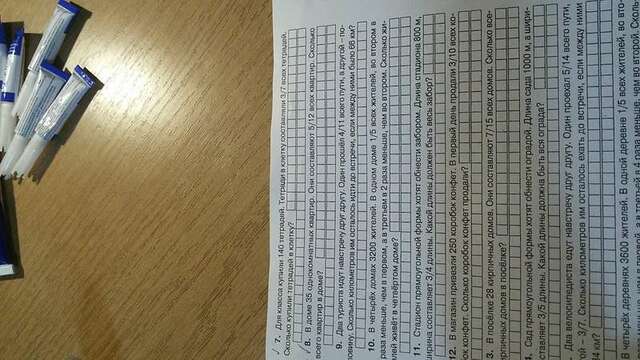 7. Для класса купили 140 тетрадей. Тетради в клетку составляли 3/7 всех тетрадей.
Сколько купили тетрадей в клетку?
8. В доме 35 однокомнатных квартир. Они составляют 5/12 всех квартир. Сколько
всего квартир в доме?
9. Два туриста идут навстречу друг другу. Один прошёл 4/11 всего пути, а другой – по-
ловину. Сколько километров им осталось идти до встречи, если между ними было 66 км?
10. В четырёх домах 3200 жителей. В одном доме 1/5 всех жителей, во втором в
раза меньше, чем в первом, а в третьем в 2 раза меньше, чем во втором. Сколько жи-
лей живёт в четвёртом доме?
11. Стадион прямоугольной формы хотят обнести забором. Длина стадиона 800 м,
ширина составляет 3/4 длины. Какой длины должен быть весь забор?
12. В магазин привезли 250 коробок конфет. В первый день продали 3/10 всех ко-
ок конфет. Сколько коробок конфет продали?
3. В посёлке 28 кирпичных домов. Они составляют 7/15 всех домов. Сколько все-
ирпичных домов в посёлке?
4. Сад прямоугольной формы хотят обнести оградой. Длина сада 1000 м, а шири-
ставляет 3/5 длины. Какой длины должна быть вся ограда?
. Два велосипедиста едут навстречу друг другу. Один проехал 5/14 всего пути,
гой – 3/7. Сколько километров им осталось ехать до встречи, если между ними
84 км?
В четырёх деревнях 3600 жителей. В одной деревне 1/5 всех жителей, во вто-
меньше, чем в первой, а в третьей в 4 раза меньше, чем во второй. Ско